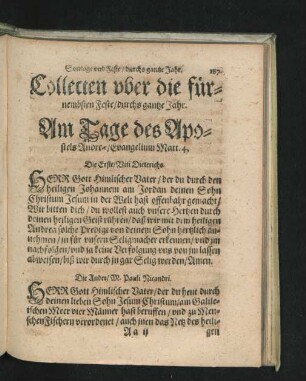 Sontags vnd Feste / durchs gantze Jahr. 187
Collecten vber die für-
nembsten Feste / durchs gantze Jahr.
Am Tage des Apo-
stels Andre / Evangelium Matt. 4.
Die Erste / Viti Dieterichs.
HERR Gott Himlischer Vater / der du durch den
heiligen Johannem am Jordan deinen Sohn
Christum Jesum in der Welt hast offenbahr gemacht /
Wir bitten dich / du wollest auch vnsere Hertzen durch
deinen heiligen Geist rühren / daß wir mit dem heiligen
Andrea solche Predigt von deinem Sohn hertzlich an-
nehmen / in für vnsern Seligmacher erkennen / vnd jm
nachfolgen / vnd ja keine Verfolgung vns von jm lassen
abweisen / biß wir durch jn gar Selig werden / Amen.
Die Ander / M. Pauli Nicandri.
HERR Gott Himlischer Vater / der du heut durch
deinen lieben Sohn Jesum Christum / am Galile-
ischen Meer vier Männer hast beruffen / vnd zu Men-
schen Fischern verordenet / auch jnen das Netz des heili-
Aa ij gen